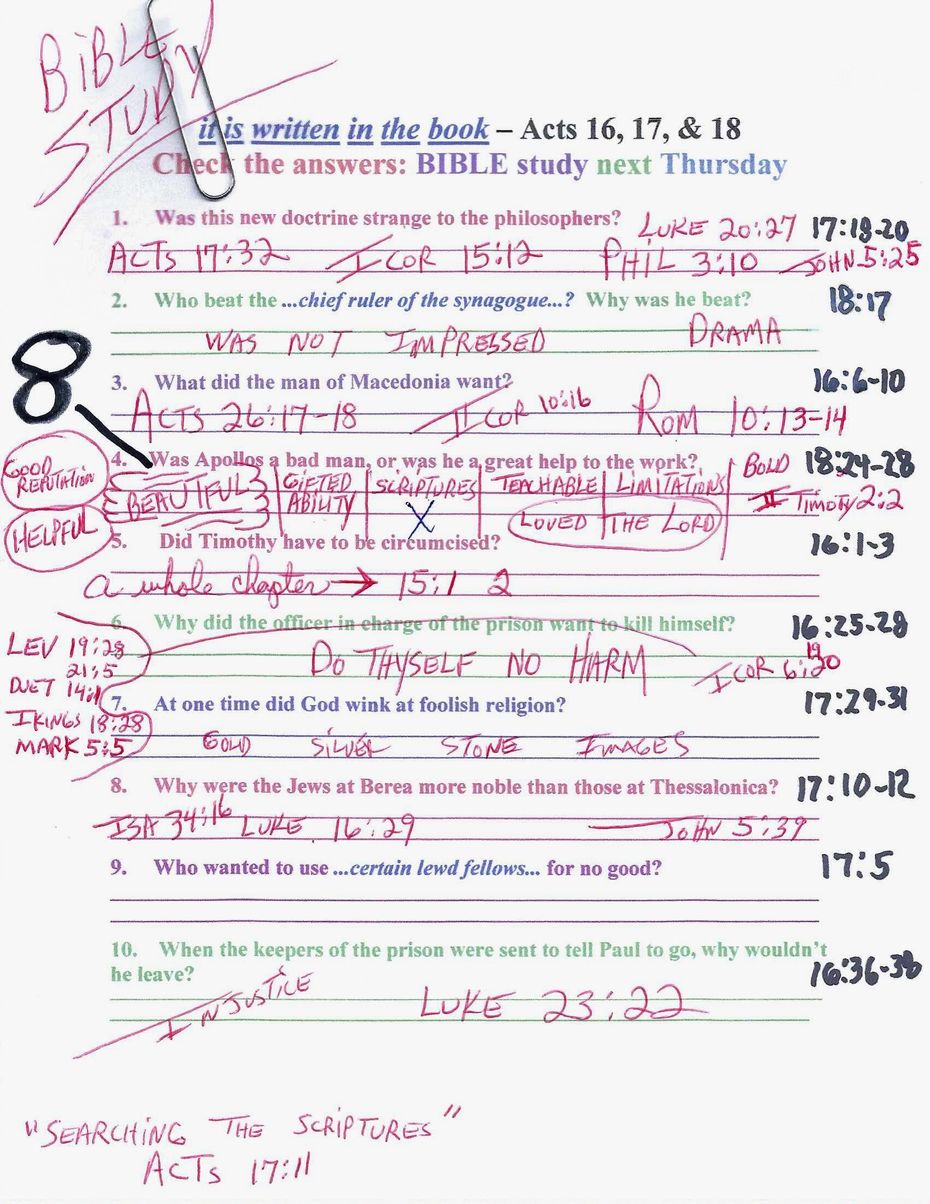 BiBLE
STUDY
it is written in the book – Acts 16, 17, & 18
Check the answers: BIBLE study next Thursday
1. Was this new doctrine strange to the philosophers? LUKE 20:27 17:18-20
ACTS 17:32 I COR 15:12 PHIL 3:10 JOHN 5:25
2. Who beat the ...chief ruler of the synagogue...? Why was he beat? 18:17
WAS NOT IMPRESSED DRAMA
8
3. What did the man of Macedonia want? 16:6-10
ACTS 26:17-18 II COR 10:16 ROM 10:13-14
4. Was Apollos a bad man, or was he a great help to the work? BOLD 18:24-28
GOOD REPUTATION
BEAUTIFUL GIFTED ABILITY SCRIPTURES TEACHABLE LIMITATIONS II TIMOTY 2:2
X LOVED THE LORD
HELPFUL
5. Did Timothy have to be circumcised? 16:1-3
a whole chapter → 15:1 2
6. Why did the officer in charge of the prison want to kill himself? 16:25-28
DO THYSELF NO HARM I COR 6:19 20
LEV 19:28
21:5
DUET 14:1
I KINGS 18:28
MARK 5:5
7. At one time did God wink at foolish religion? 17:29-31
GOLD SILVER STONE IMAGES
8. Why were the Jews at Berea more noble than those at Thessalonica? 17:10-12
ISA 34:16 LUKE 16:29 JOHN 5:39
9. Who wanted to use ...certain lewd fellows... for no good? 17:5
10. When the keepers of the prison were sent to tell Paul to go, why wouldn't
he leave? 16:36-38
INJUSTICE LUKE 23:22
"SEARCHING THE SCRIPTURES"
ACTS 17:11